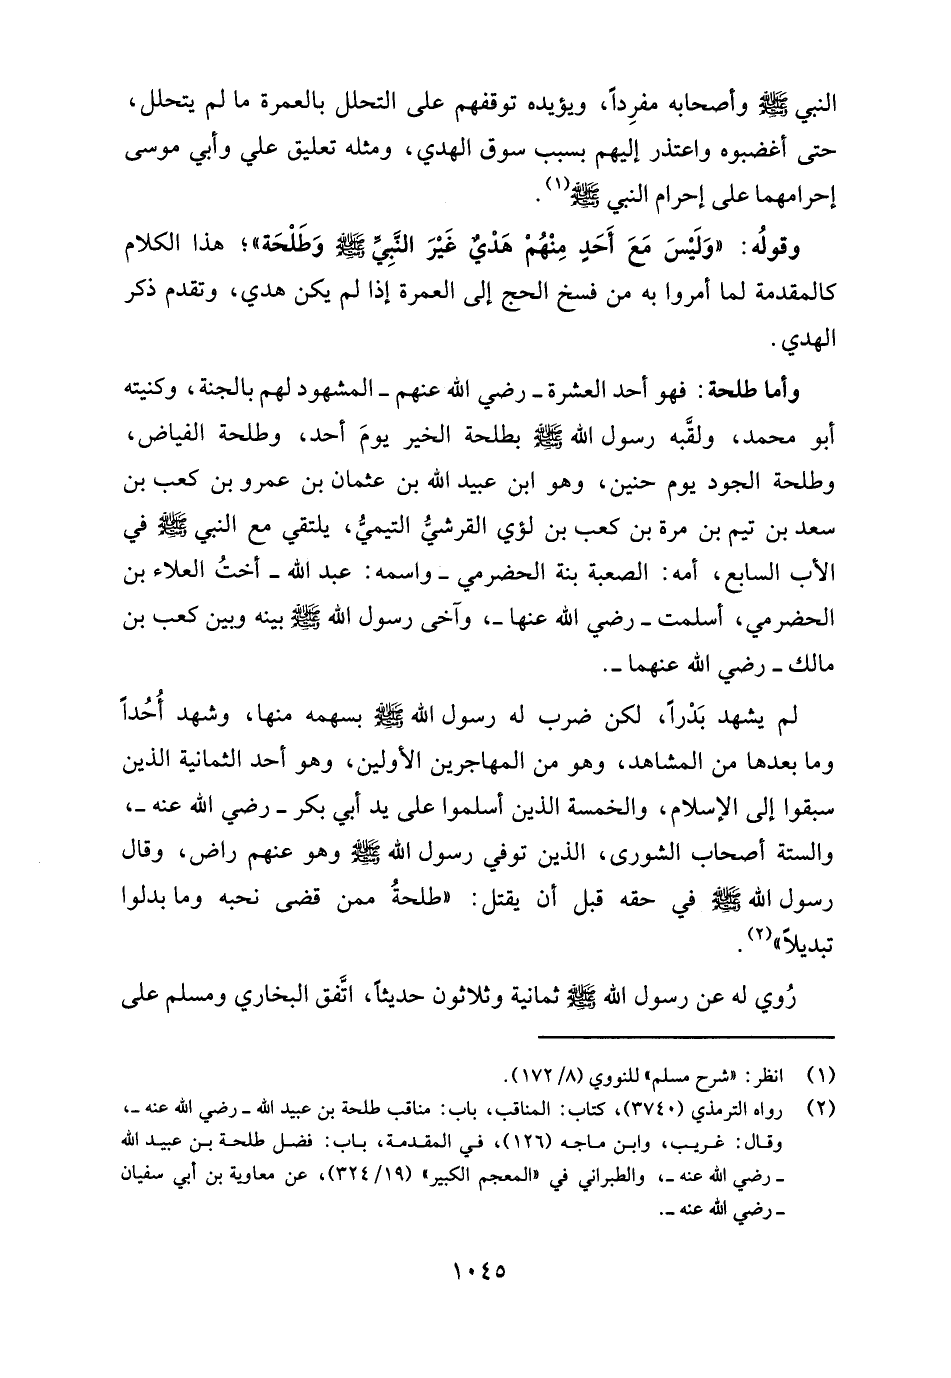 النبي ﷺ وأصحابه مفرِداً، ويؤيده توقفهم على التحلل بالعمرة ما لم يتحلل،
حتى أغضبوه واعتذر إليهم بسبب سوق الهدي، ومثله تعليق علي وأبي موسى
إحرامهما على إحرام النبي ﷺ(١).
وقولُه: «وَلَيْسَ مَعَ أَحَدٍ مِنْهُمْ هَدْيٌ غَيْرَ النَّبِيِّ ﷺ وَطَلْحَة»؛ هذا الكلام
كالمقدمة لما أمروا به من فسخ الحج إلى العمرة إذا لم يكن هدي، وتقدم ذكر
الهدي.
وأما طلحة: فهو أحد العشرة ـ رضي الله عنهم ـ المشهود لهم بالجنة، وكنيته
أبو محمد، ولقَّبه رسول الله ﷺ بطلحة الخير يومَ أحد، وطلحة الفياض،
وطلحة الجود يوم حنين، وهو ابن عبيد الله بن عثمان بن عمرو بن كعب بن
سعد بن تيم بن مرة بن كعب بن لؤي القرشيُّ التيميُّ، يلتقي مع النبي ﷺ في
الأب السابع، أمه: الصعبة بنة الحضرمي ـ واسمه: عبد الله ـ أختُ العلاء بن
الحضرمي، أسلمت ـ رضي الله عنها ـ، وآخى رسول الله ﷺ بينه وبين كعب بن
مالك ـ رضي الله عنهما ـ.
لم يشهد بَدْراً، لكن ضرب له رسول الله ﷺ بسهمه منها، وشهد أُحُداً
وما بعدها من المشاهد، وهو من المهاجرين الأولين، وهو أحد الثمانية الذين
سبقوا إلى الإسلام، والخمسة الذين أسلموا على يد أبي بكر ـ رضي الله عنه ـ،
والستة أصحاب الشورى، الذين توفي رسول الله ﷺ وهو عنهم راض، وقال
رسول الله ﷺ في حقه قبل أن يقتل: «طلحةُ ممن قضى نحبه وما بدلوا
تبديلاً»(٢).
رُوي له عن رسول الله ﷺ ثمانية وثلاثون حديثاً، اتَّفق البخاري ومسلم على
(١) انظر: «شرح مسلم» للنووي (٨/ ١٧٢).
(٢) رواه الترمذي (٣٧٤٠)، كتاب: المناقب، باب: مناقب طلحة بن عبيد الله ـ رضي الله عنه ـ،
وقال: غريب، وابن ماجه (١٢٦)، في المقدمة، باب: فضل طلحة بن عبيد الله
ـ رضي الله عنه ـ، والطبراني في «المعجم الكبير» (١٩/ ٣٢٤)، عن معاوية بن أبي سفيان
ـ رضي الله عنه ـ.
١٠٤٥